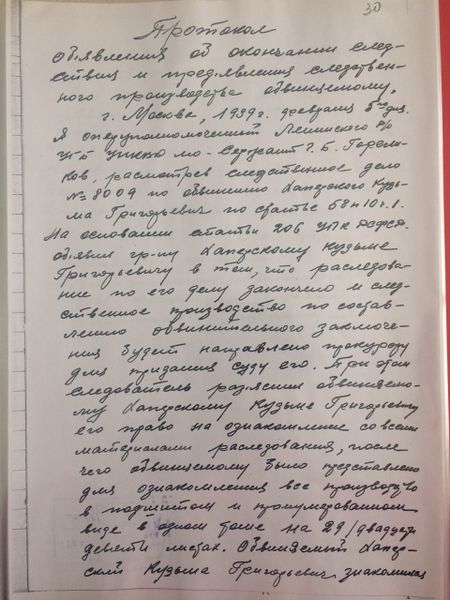 30
Протокол
Объявления об окончании след-
ствия и предявления следствен-
ного производства обвиняемому,
г. Москва, 1939 г. февраля 5го дня.
Я оперуполномоченный Ленинского р/о
УГБ УНКВД мо- Сержант Г. Б.
ков, рассмотрев следственное дело
№ 8009 по обвинению Хаперского Кузь-
ма Григорьевич по статье 58 п 10 ч. 1.
На основании статьи 206 УПК РСФСР.
объявил гр-ну Хаперскому Кузьме
Григорьевичу в том, что расследова-
ние по его делу закончено и след-
ственное производство по состав-
лению обвинительного заключе-
ния будет направлено прокурору
для придания суду его. При этом
следователь разяснил обвиняемо-
му Хаперскому Кузьме Григорьевичу
его право на ознакомление со всеми
материалами расследования, после
чего обвиняемому было представлено
для ознакомления все производство
в подшитом и пронумерованном
виде в одном томе на 29/двадцати
девяти листах. Обвиняемый Хапер-
ский Кузьма Григорьевич знакомился